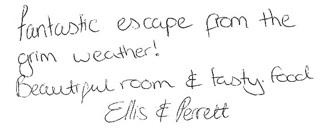 fantastic escape from the
grim weather!
Beautiful room & tasty food
Ellis & Perrett